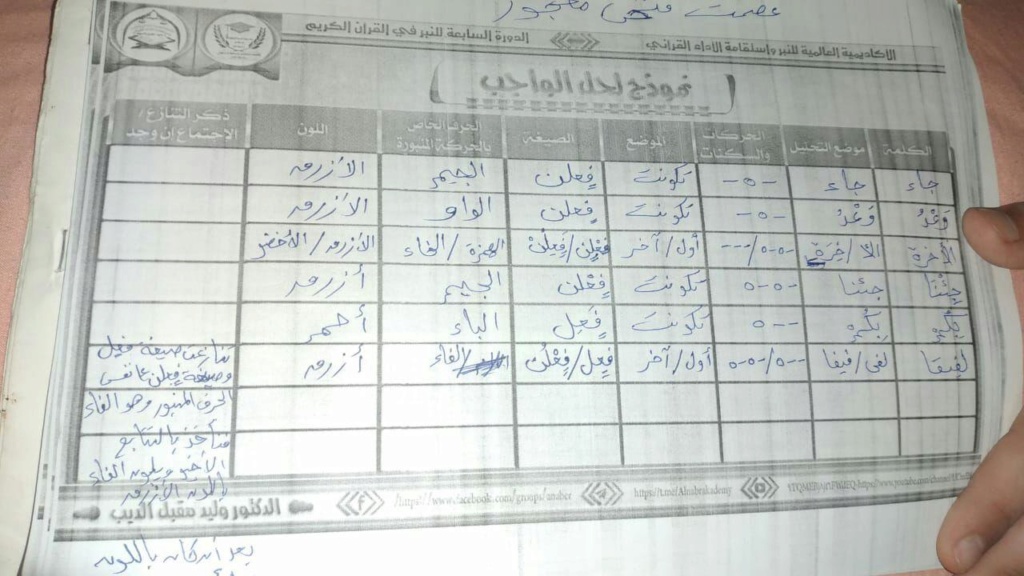 عصمت
الأكاديمية العالمية للنبر وإستقامة الأداء القرآني الدورة السابعة للنبر في القرآن الكريم
نموذج لحل الواجب
الكلمة موضع التحليل الحركات والسكنات الموضع الصيغة الحرف الخاص بالحركة المنبورة اللون ذكر التنازع / الإجتماع إن وجد
جاء جاء -٥- تكوينت فعلن الجيم الأزرق
وَعْدُ وَعْدُ -٥- تكوينت فعلن الواو الأزرق
الآخرة الآ/خرة -٥-٥/--- أول/آخر فعلن/فعلن الهمزة/الخاء الأزرق/الأخضر
جئنا جئنا -٥-٥ تكوينت فعلن الجيم أزرق
بكم --٥ تكوينت فعل الباء أحمر
لفيفا لفي/فيفا --٥/-٥-٥ أول/آخر فعل/فعلن /الفاء أزرق
صيغة فعل
وصيغة فعلن نفس
الحرف المنبور وهو الفاء
بالتتابع
الفاء
باللون الأزرق
https://www.facebook.com/groups/anaber https://t.me/Alnabrakademy
الدكتور وليد مقبل الديب
بعد أن كان باللون